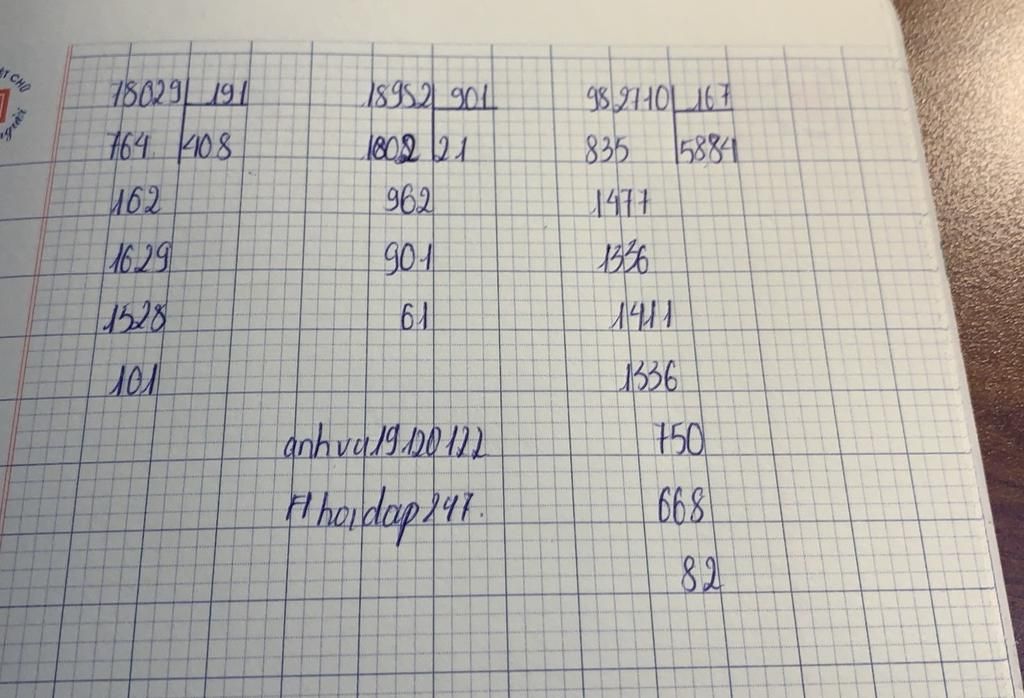 78029 191 18952 901 982710 167
764 408 1802 21 835 5884
162 962 1477
1629 901 1336
1528 61 1411
101 1336
anhvu19120122 750
#hoidap247. 668
82